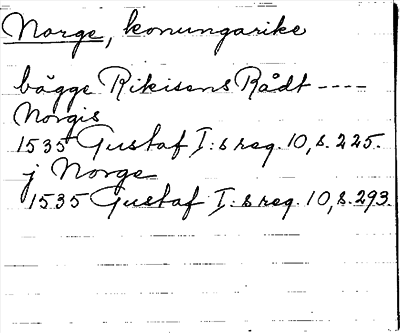 Norge, konungarike
bägge Rikisens Rådt ----
Norgis
1535 Gustaf I:s reg. 10, s. 225.
j Norge
1535 Gustaf I:s reg. 10, s. 293.